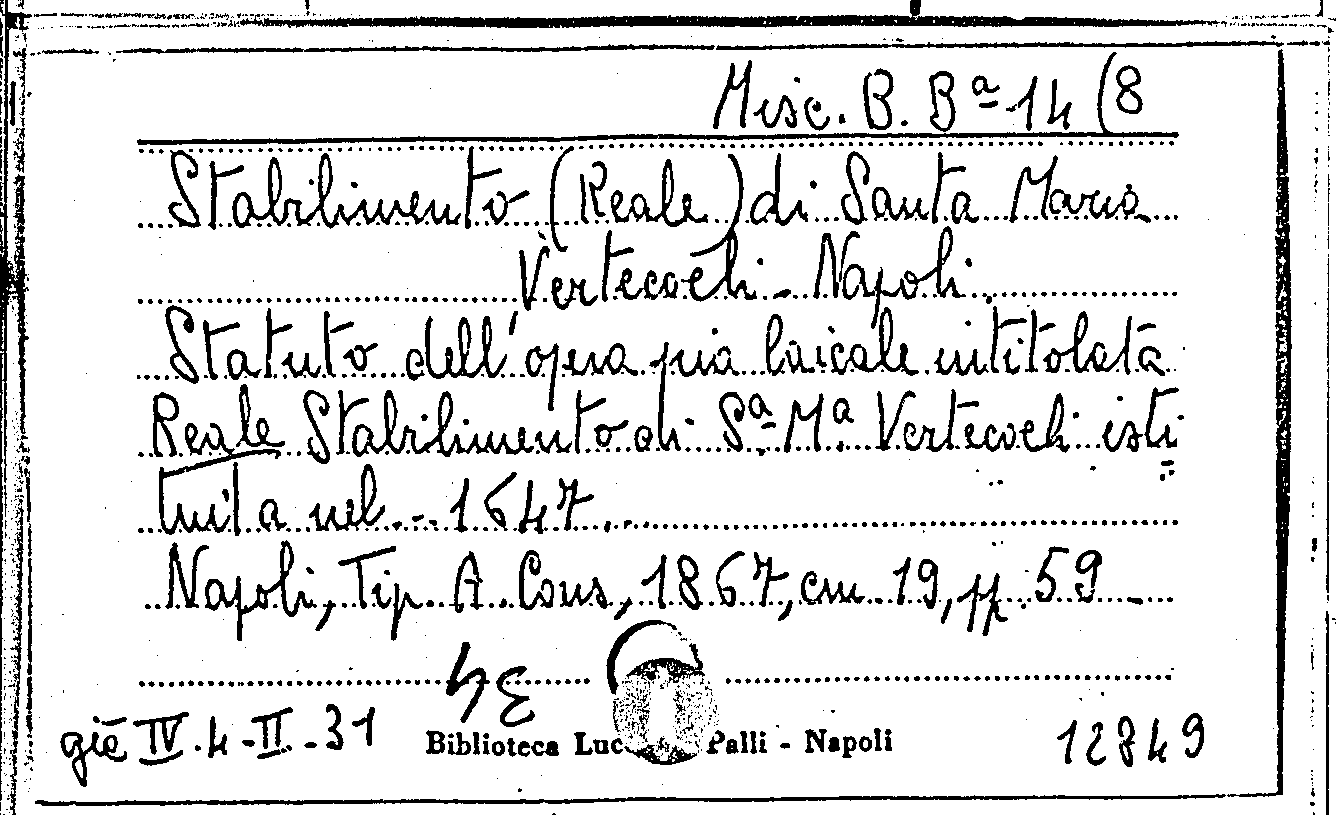 Misc. B. Bª 14 (8
Stabilimento (Reale) di Santa Maria
Vertecoeli - Napoli.
Statuto dell'opera pia laicale intitolata
Reale Stabilimento di Sª Mª Vertecoeli isti
tuita nel... 1647...
Napoli, Tip. A. Cons, 1867, cm. 19, pp. 59
già IV.4-II.-31
Biblioteca Luc Palli - Napoli
12849